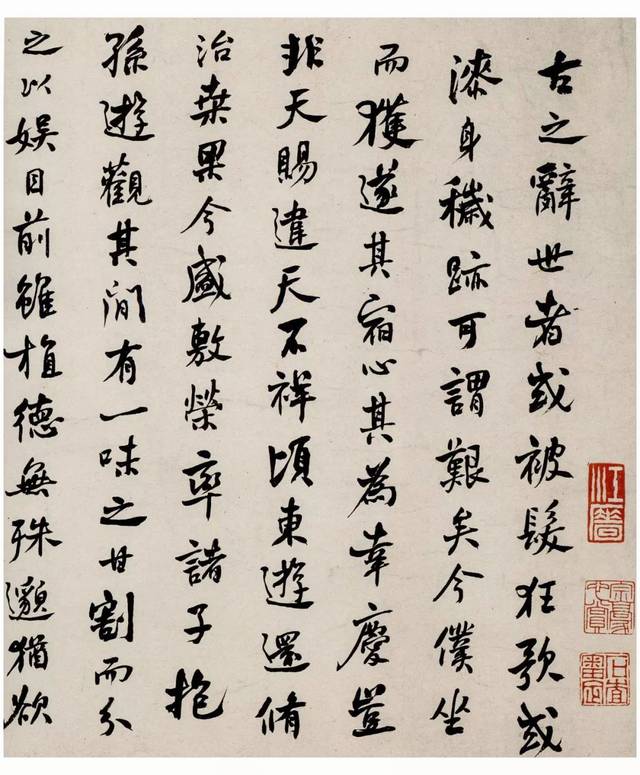 古之辭世者或被髮狂歌或
漆身穢跡可謂艱矣今僕坐
而獲遂其宿心其為幸慶豈
非天賜違天不祥頃東遊還脩
治桑果今盛敷榮率諸子抱
孫遊觀其間有一味之甘割而分
之以娛目前雖植德無殊邈猶欲